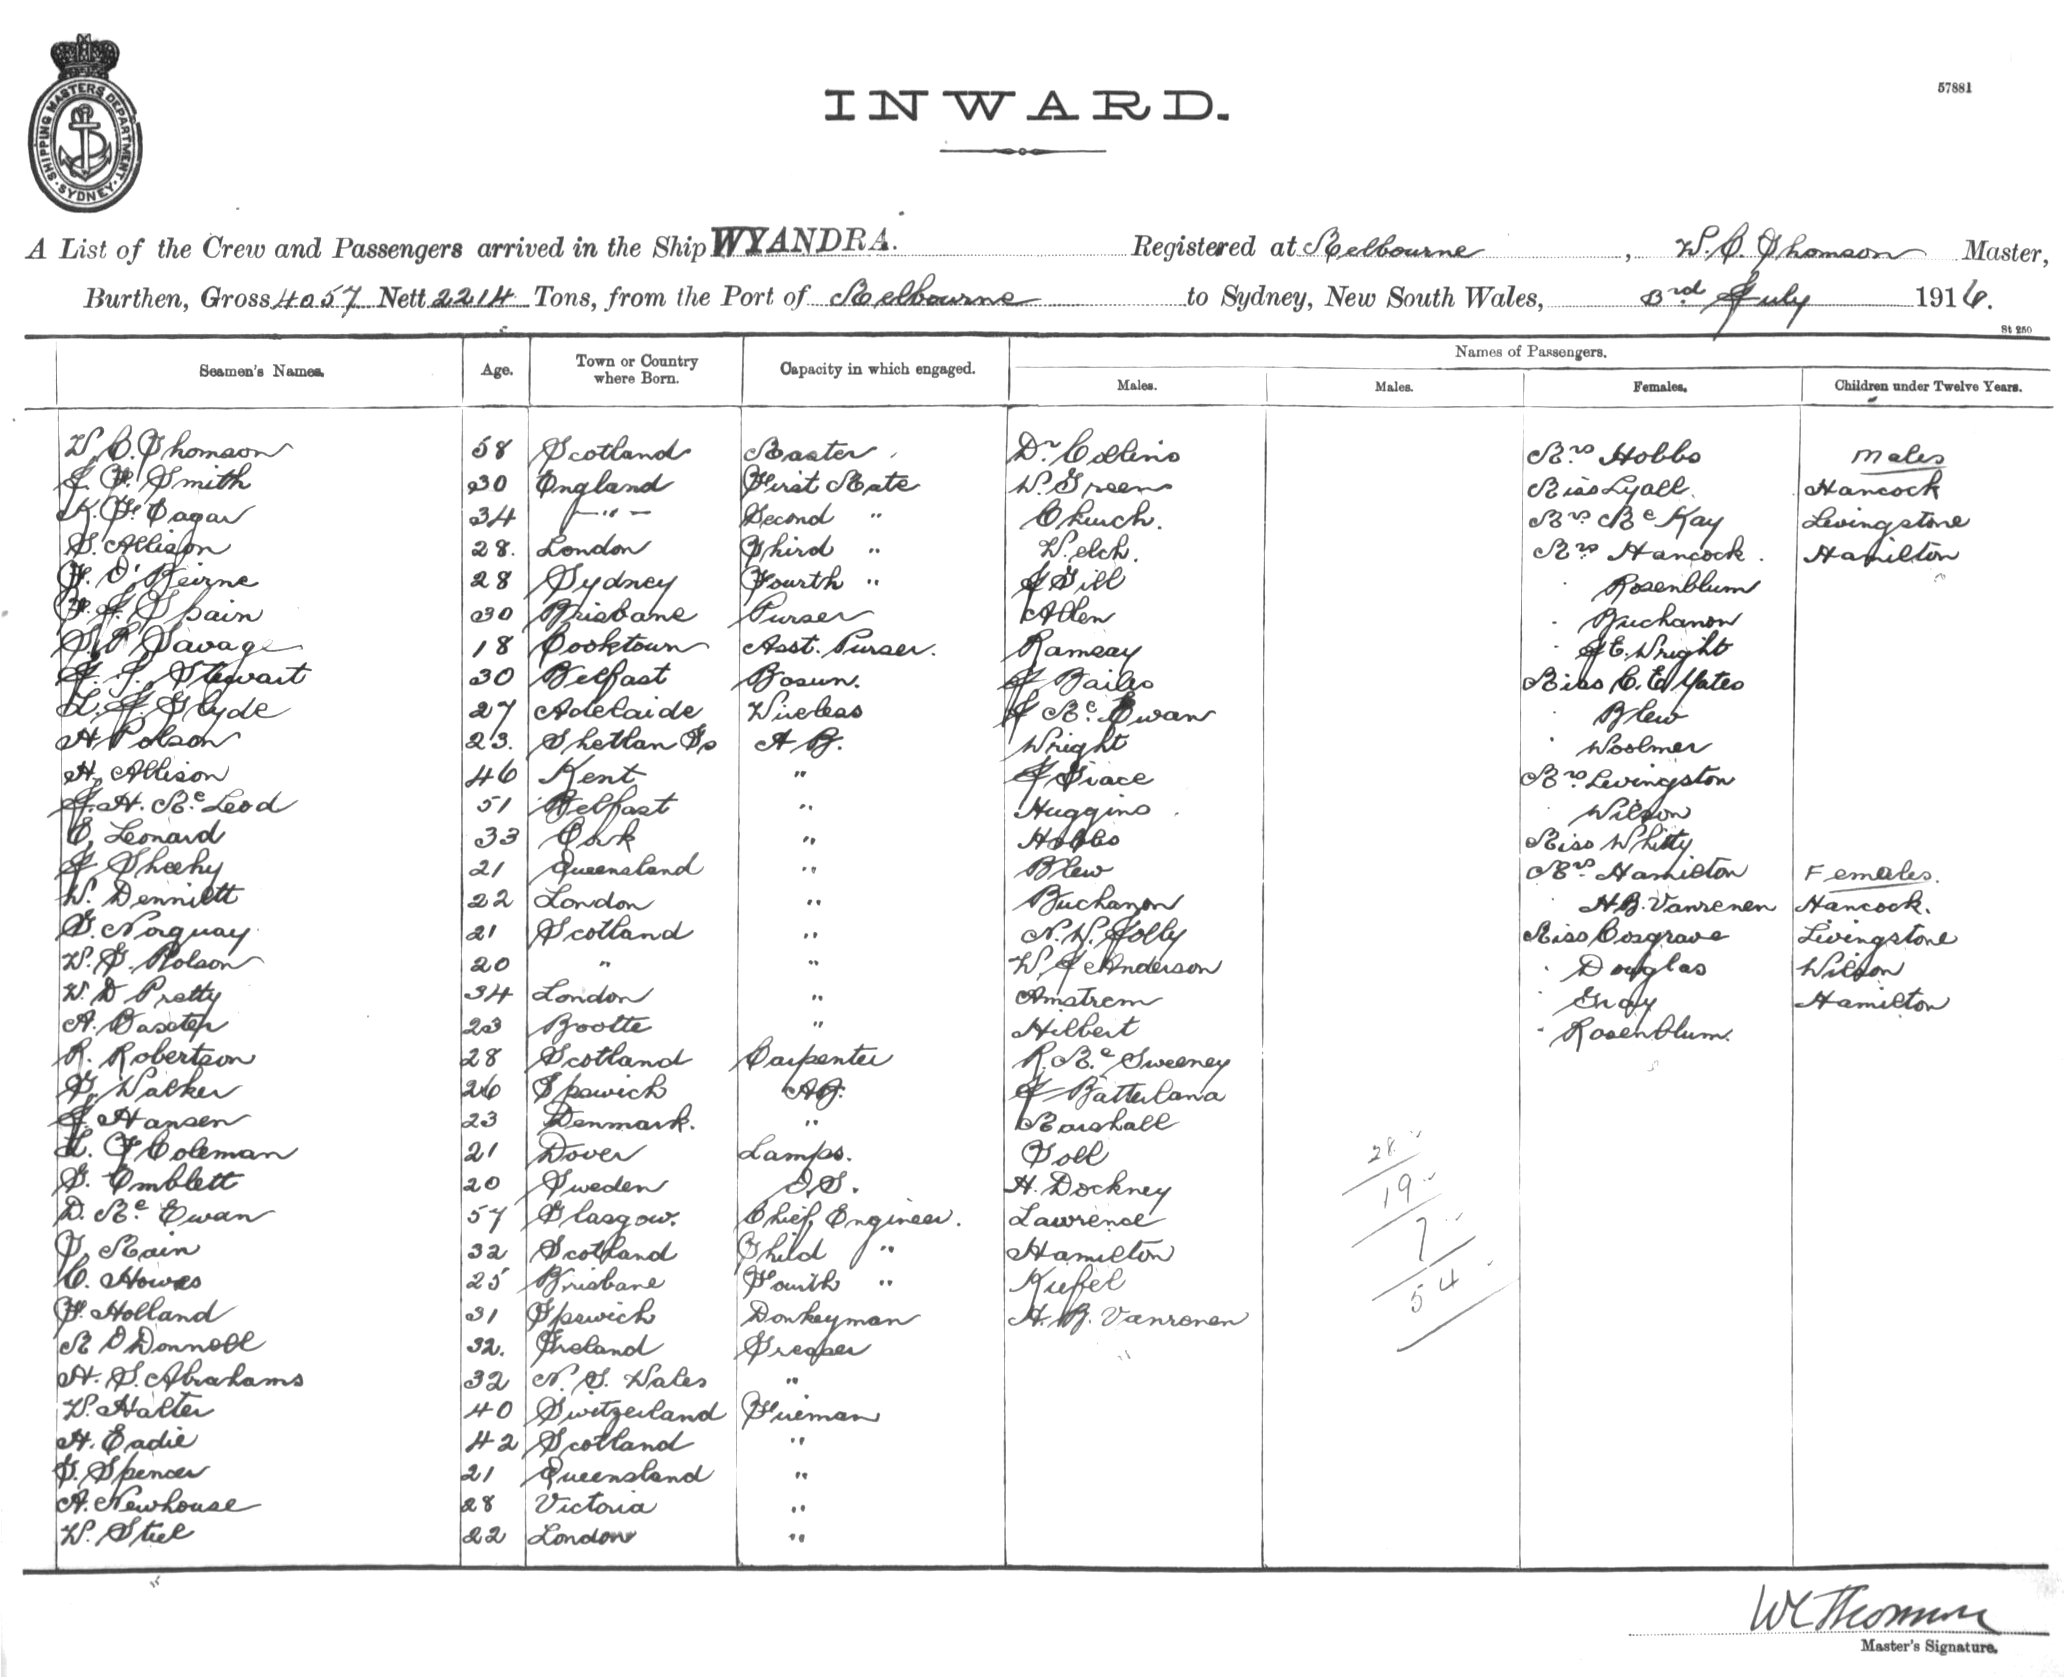 SHIPPING MASTERS DEPARTMENT
SYDNEY
INWARD.
57881
A List of the Crew and Passengers arrived in the Ship WYANDRA. Registered at Melbourne, W. C. Thomson Master,
Burthen, Gross 4057 Nett 2214 Tons, from the Port of Melbourne to Sydney, New South Wales, 3rd July 1916.
St 250
Seamen's Names. Age. Town or Country where Born. Capacity in which engaged. Names of Passengers.
Males. Males. Females. Children under Twelve Years.
W. C. Thomson 58 Scotland Master Dr Collins Mrs Hobbs Males
J. F. Smith 30 England First Mate W. Green Miss Lyall Hancock
K. F. Cagar 34 " Second " Church. Mrs McKay Livingstone
S. Allison 28. London Third " Welch. Mrs Hancock. Hamilton
F. O'Beirne 28 Sydney Fourth " J Gill " Rosenblum
F. J. Spain 30 Brisbane Purser Allen " Buchanon
Savage 18 Cooktown Asst. Purser. Ramsay " J E. Wright
J. S. Stewart 30 Belfast Bosun. J Bailes Miss C. E. Yates
L. J. Glyde 27 Adelaide Wireless J McEwan " Blew
H. Polson 23. Shetlan Is A B. Wright " Woolmer
H. Allison 46 Kent " J Grace Mrs Levingston
J. H. McLeod 51 Belfast " Huggins " Wilson
C. Leonard 33 Cork " Hobbs Miss Whitty
J Sheehy 21 Queensland " Blew Mrs Hamilton Females.
W. Dennitt 22 London " Buchanon " H B. Vanrenen Hancock.
G. Norquay 21 Scotland " N. W. Jolly Miss Cosgrave Livingstone
W. G. Polson 20 " " W J Anderson " Douglas Wilson
W. D Pretty 34 London " Amstrem " Gray Hamilton
A. Baxter 23 Bootle " Hilbert " Rosenblum.
R. Robertson 28 Scotland Carpenter R. McSweeney
G. Walker 26 Ipswich AB. J Batterlana
J. Hansen 23 Denmark. " Marshall
L. J Coleman 21 Dover Lamps. Toll 28
G. Emblett 20 Sweden O.S. H. Dockney 19
D. McEwan 57 Glasgow. Chief Engineer. Lawrence 7
T. Main 32 Scotland Third " Hamilton
C. Howes 25 Brisbane Fourth " Kiefel 54
F. Holland 31 Ipswich Donkeyman H. B. Vanrenen
M O'Donnell 32. Ireland Greaser
H. S. Abrahams 32 N. S. Wales "
W. Halter 40 Switzerland Fireman
H. Eadie 42 Scotland "
G. Spencer 21 Queensland "
A. Newhouse 28 Victoria "
W. Steel 22 London "
WCThomson
Master's Signature.